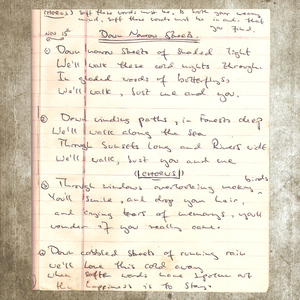 (CHORUS) Soft these words must be, to
mind, soft these words must be
you find.
NOV 15th Down Narrow Streets.
① Down narrow streets of shaded light
We'll walk these cold nights through.
In gladed words of butterflys
We'll walk, just me and you.
② Down winding paths, in Forests deep
We'll walk along the sea
Through sunsets long and Rivers wide
We'll walk, just you and me
(CHORUS)
③ Through windows overlooking birds
You'll smile, and drop your hair,
and crying tears of memorys, you'll
wonder if you really care.
④ Down cobbled streets of running rain
we'll love this cold away
when softe words have spoken out
this happiness is to stay.